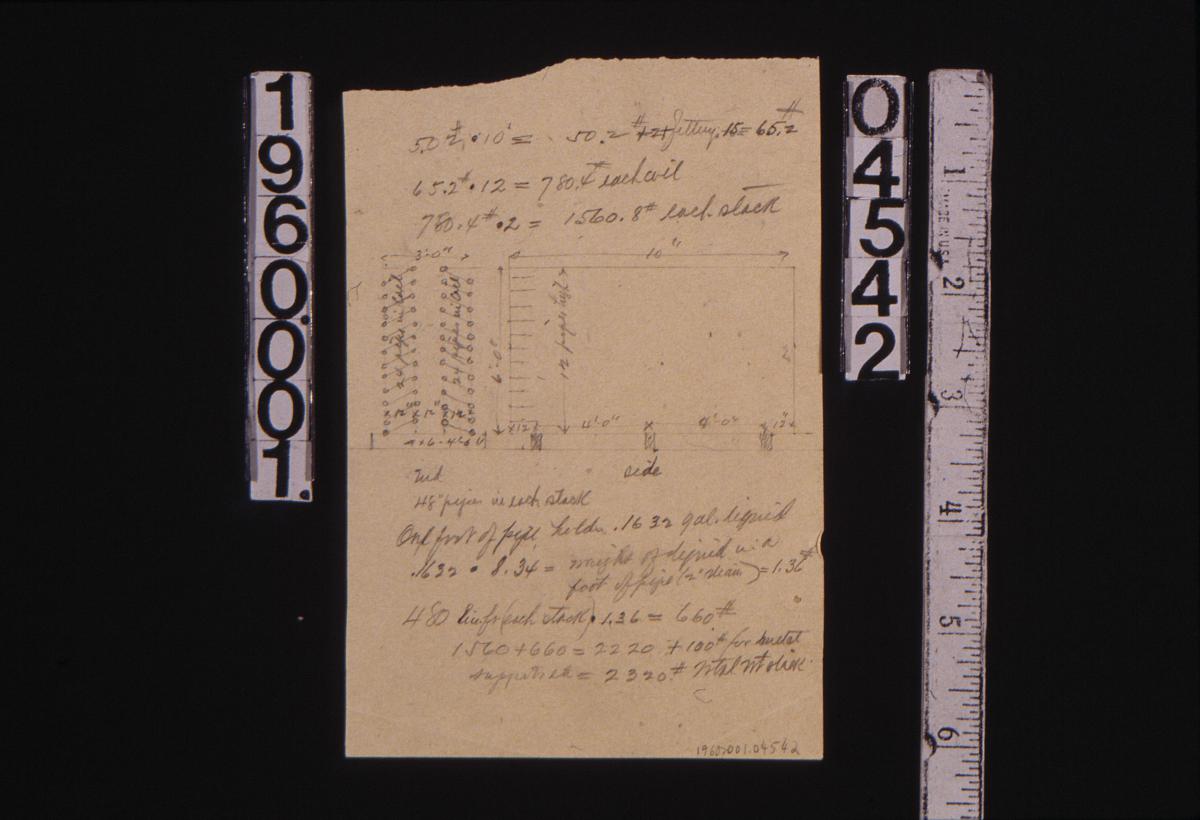 1960.001.
04542
5.02# • 10' = 50.2# +2+ fitting .15 = 65.2#
65.2# • 12 = 780.4# each coil
780.4# • 2 = 1560.8# each stack
3'-0"
10"
24 pipes in coil
24 pipes in coil
6'-0"
12 pipes high
12" 12" 12"
12
4'-0"
4'-0"
12"
End
side
48 pipes in each stack
One foot of pipe holds .1632 gal. liquid
.1632 • 8.34 = weight of liquid in a
foot of pipe (2" diam) = 1.36#
480 lin ft (each stack) • 1.36 = 660#
1560 + 660 = 2220 + 100# for metal
supports etc = 2320.# total wt
1960.001.04542
1
MADE IN USA
2
3
4
5
6